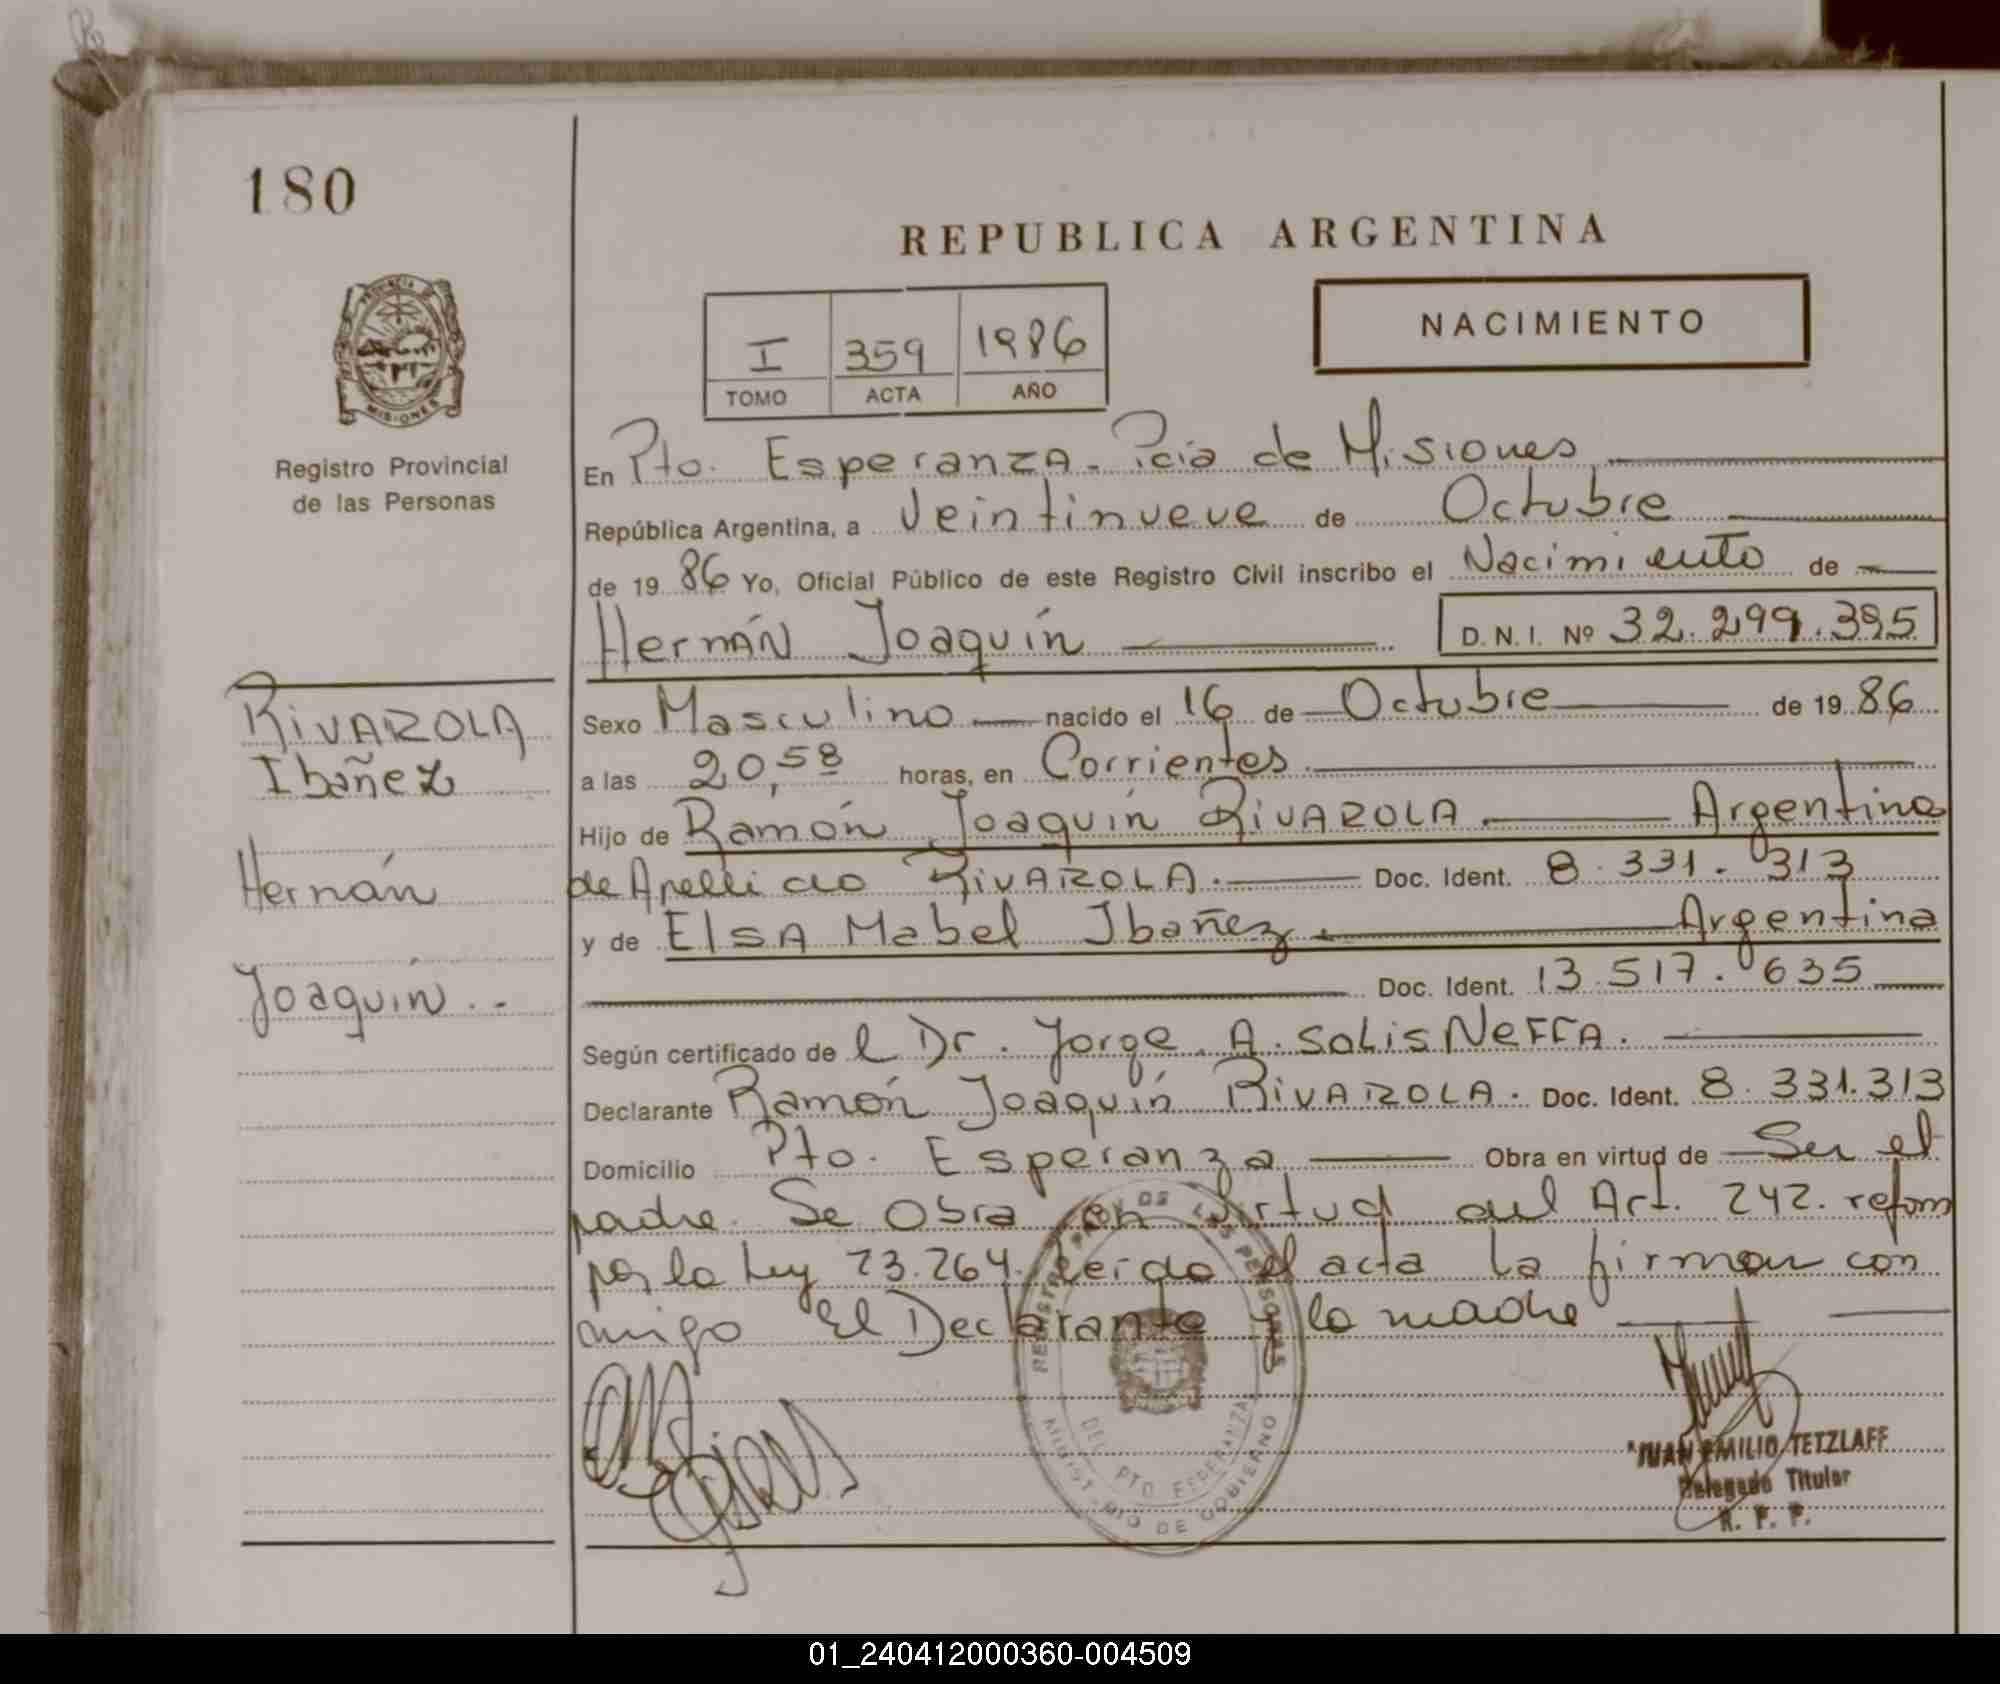 180
REPUBLICA ARGENTINA
NACIMIENTO
I 359 1986
TOMO ACTA AÑO
PROVINCIA DE
MISIONES
Registro Provincial
de las Personas
En Pto. Esperanza. Pcia de Misiones
República Argentina, a Veintinueve de Octubre
de 1986 Yo, Oficial Público de este Registro Civil inscribo el Nacimiento de
Hernán Joaquín D.N.I. Nº 32.299.395
RIVAROLA
Ibañez
Hernán
Joaquín..
Sexo Masculino nacido el 16 de Octubre de 1986
a las 20,58 horas, en Corrientes
Hijo de Ramón Joaquín RIVAROLA. Argentino
de Apellido RIVAROLA. Doc. Ident. 8.331.313
y de Elsa Mabel Ibañez. Argentina
Doc. Ident. 13.517.635
Según certificado de el Dr. Jorge A. Solis Neffa.
Declarante Ramón Joaquín RIVAROLA. Doc. Ident. 8.331.313
Domicilio Pto. Esperanza Obra en virtud de Ser el
padre. Se Obra en virtud del Art. 242. reform
por la Ley 23.264. Leida el acta la firman con
migo El Declarante y la madre
REGISTRO PROV. DE LAS PERSONAS
DEL PTO ESPERANZA
MINISTERIO DE GOBIERNO
JUAN EMILIO TETZLAFF
Delegado Titular
R. P. P.
01_240412000360-004509